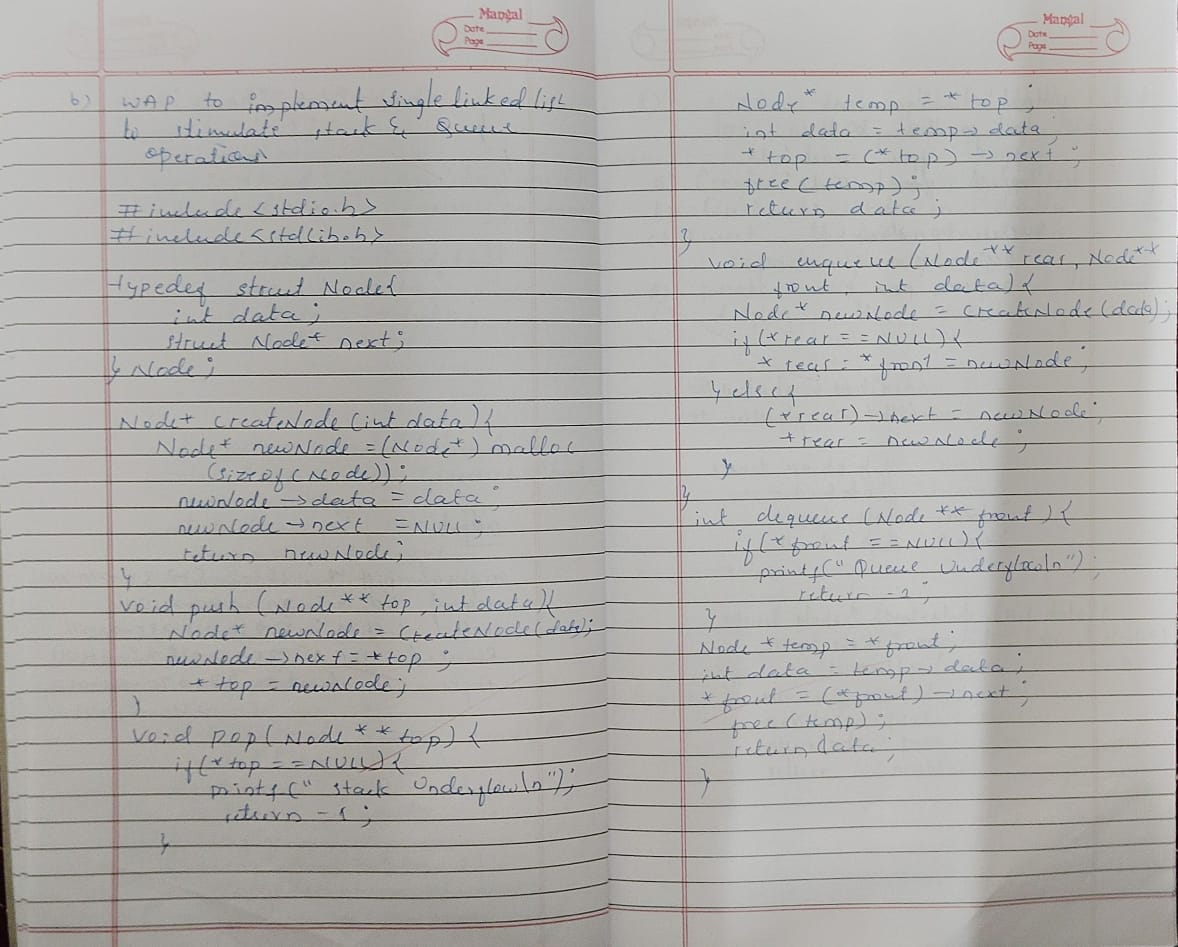 Mangal
Date
Page
b) WAP to implement single linked list
to stimulate stack & Queue
operations
#include <stdio.h>
#include <stdlib.h>
typedef struct Node{
int data;
struct Node* next;
} Node;
Node* createNode (int data) {
Node* newNode = (Node*) malloc
(sizeof(Node));
newNode → data = data;
newNode → next = NULL;
return newNode;
}
void push (Node** top, int data){
Node* newNode = CreateNode(data);
newNode → next = *top ;
* top = newNode;
}
void pop( Node ** top) {
if(*top == NULL) {
printf (" stack Underflow\n");
return -1 ;
}
Mangal
Date
Page
Node* temp = *top ;
int data = temp → data;
* top = (*top) → next ;
free (temp);
return data ;
}
void enqueue (Node** rear, Node**
front, int data) {
Node* newNode = CreateNode (data);
if (*rear == NULL) {
* rear = *front = newNode;
} else {
(*rear) → next = newNode;
*rear = newNode ;
}
}
int dequeue (Node ** front) {
if (*front == NULL) {
printf(" Queue Underflow\n");
return -1;
}
Node *temp = *front;
int data = temp → data;
* front = (*front) → next ;
free (temp) ;
return data;
}